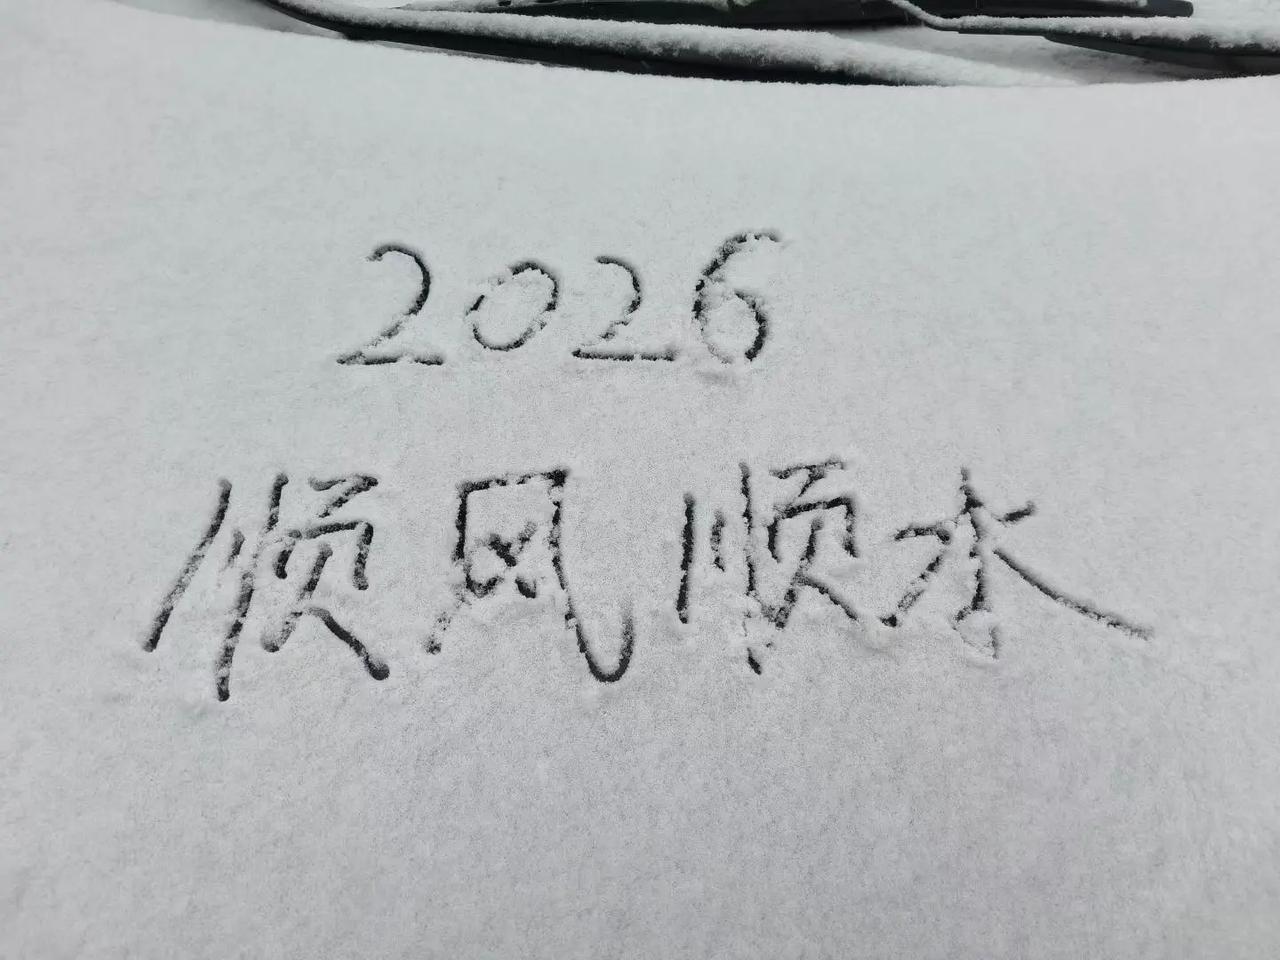 2026
顺风顺水